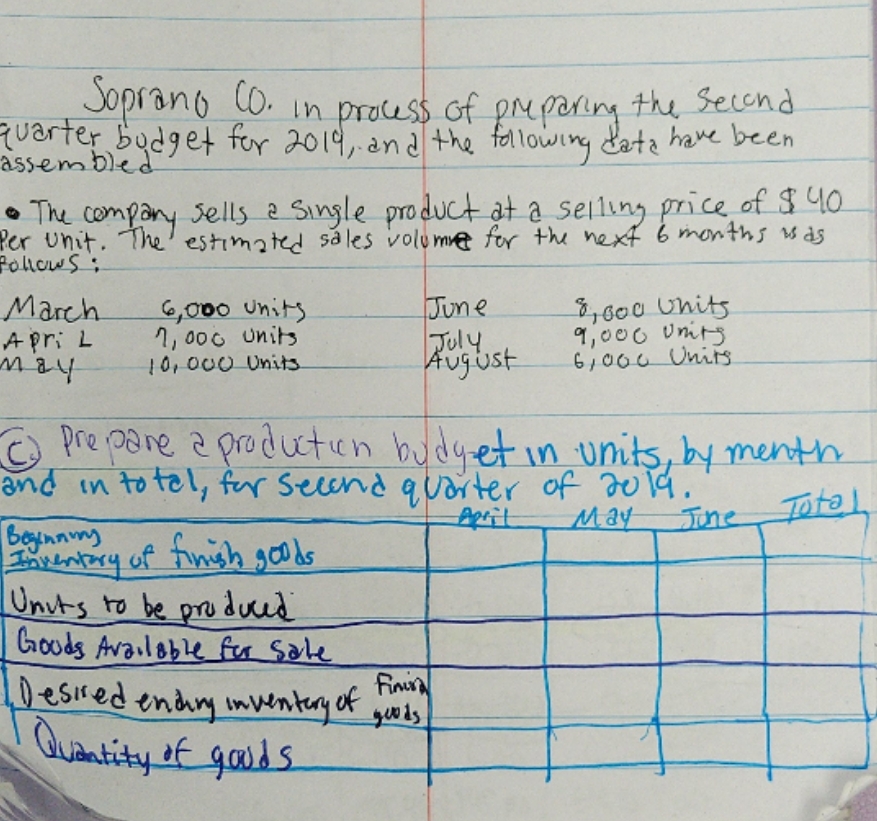 Soprano Co. in process of preparing the Second
quarter budget for 2019, and the following data have been
assembled
• The company sells a Single product at a selling price of $40
Per Unit. The estimated sales volume for the next 6 months is as
follows:
March 6,000 units June 8,000 Units
April 7,000 Units July 9,000 Units
May 10,000 Units August 6,000 Units
C) Prepare a production budget in units, by month
and in total, for second quarter of 2019.
April May June Total
Beginning
Inventory of finish goods
Units to be produced
Goods Available for Sale
Desired ending inventory of Finish
goods
Quantity of goods